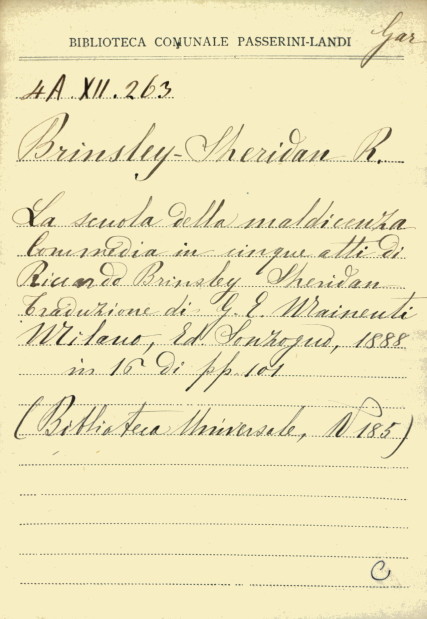 Gar
BIBLIOTECA COMUNALE PASSERINI-LANDI
4A.XII.263
Brinsley-Sheridan R.
La scuola della maldicenza
Commedia in cinque atti di
Riccardo Brinsley Sheridan
traduzione di G. E. Mainenti
Milano, Ed. Sonzogno, 1888
in 16 di pp. 101
(Biblioteca Universale, N 185)
C